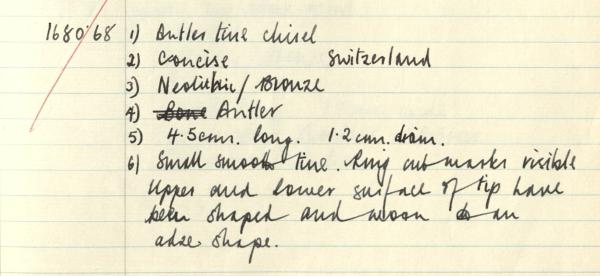 1680.68 1) Antler tine chisel
2) Concise Switzerland
3) Neolithic / Bronze
4) Bone Antler
5) 4.5cms. long. 1.2cms. diam.
6) Small smooth tine. Ring cut marks visible
Upper and lower surface of tip have
been shaped and worn to an
adze shape.